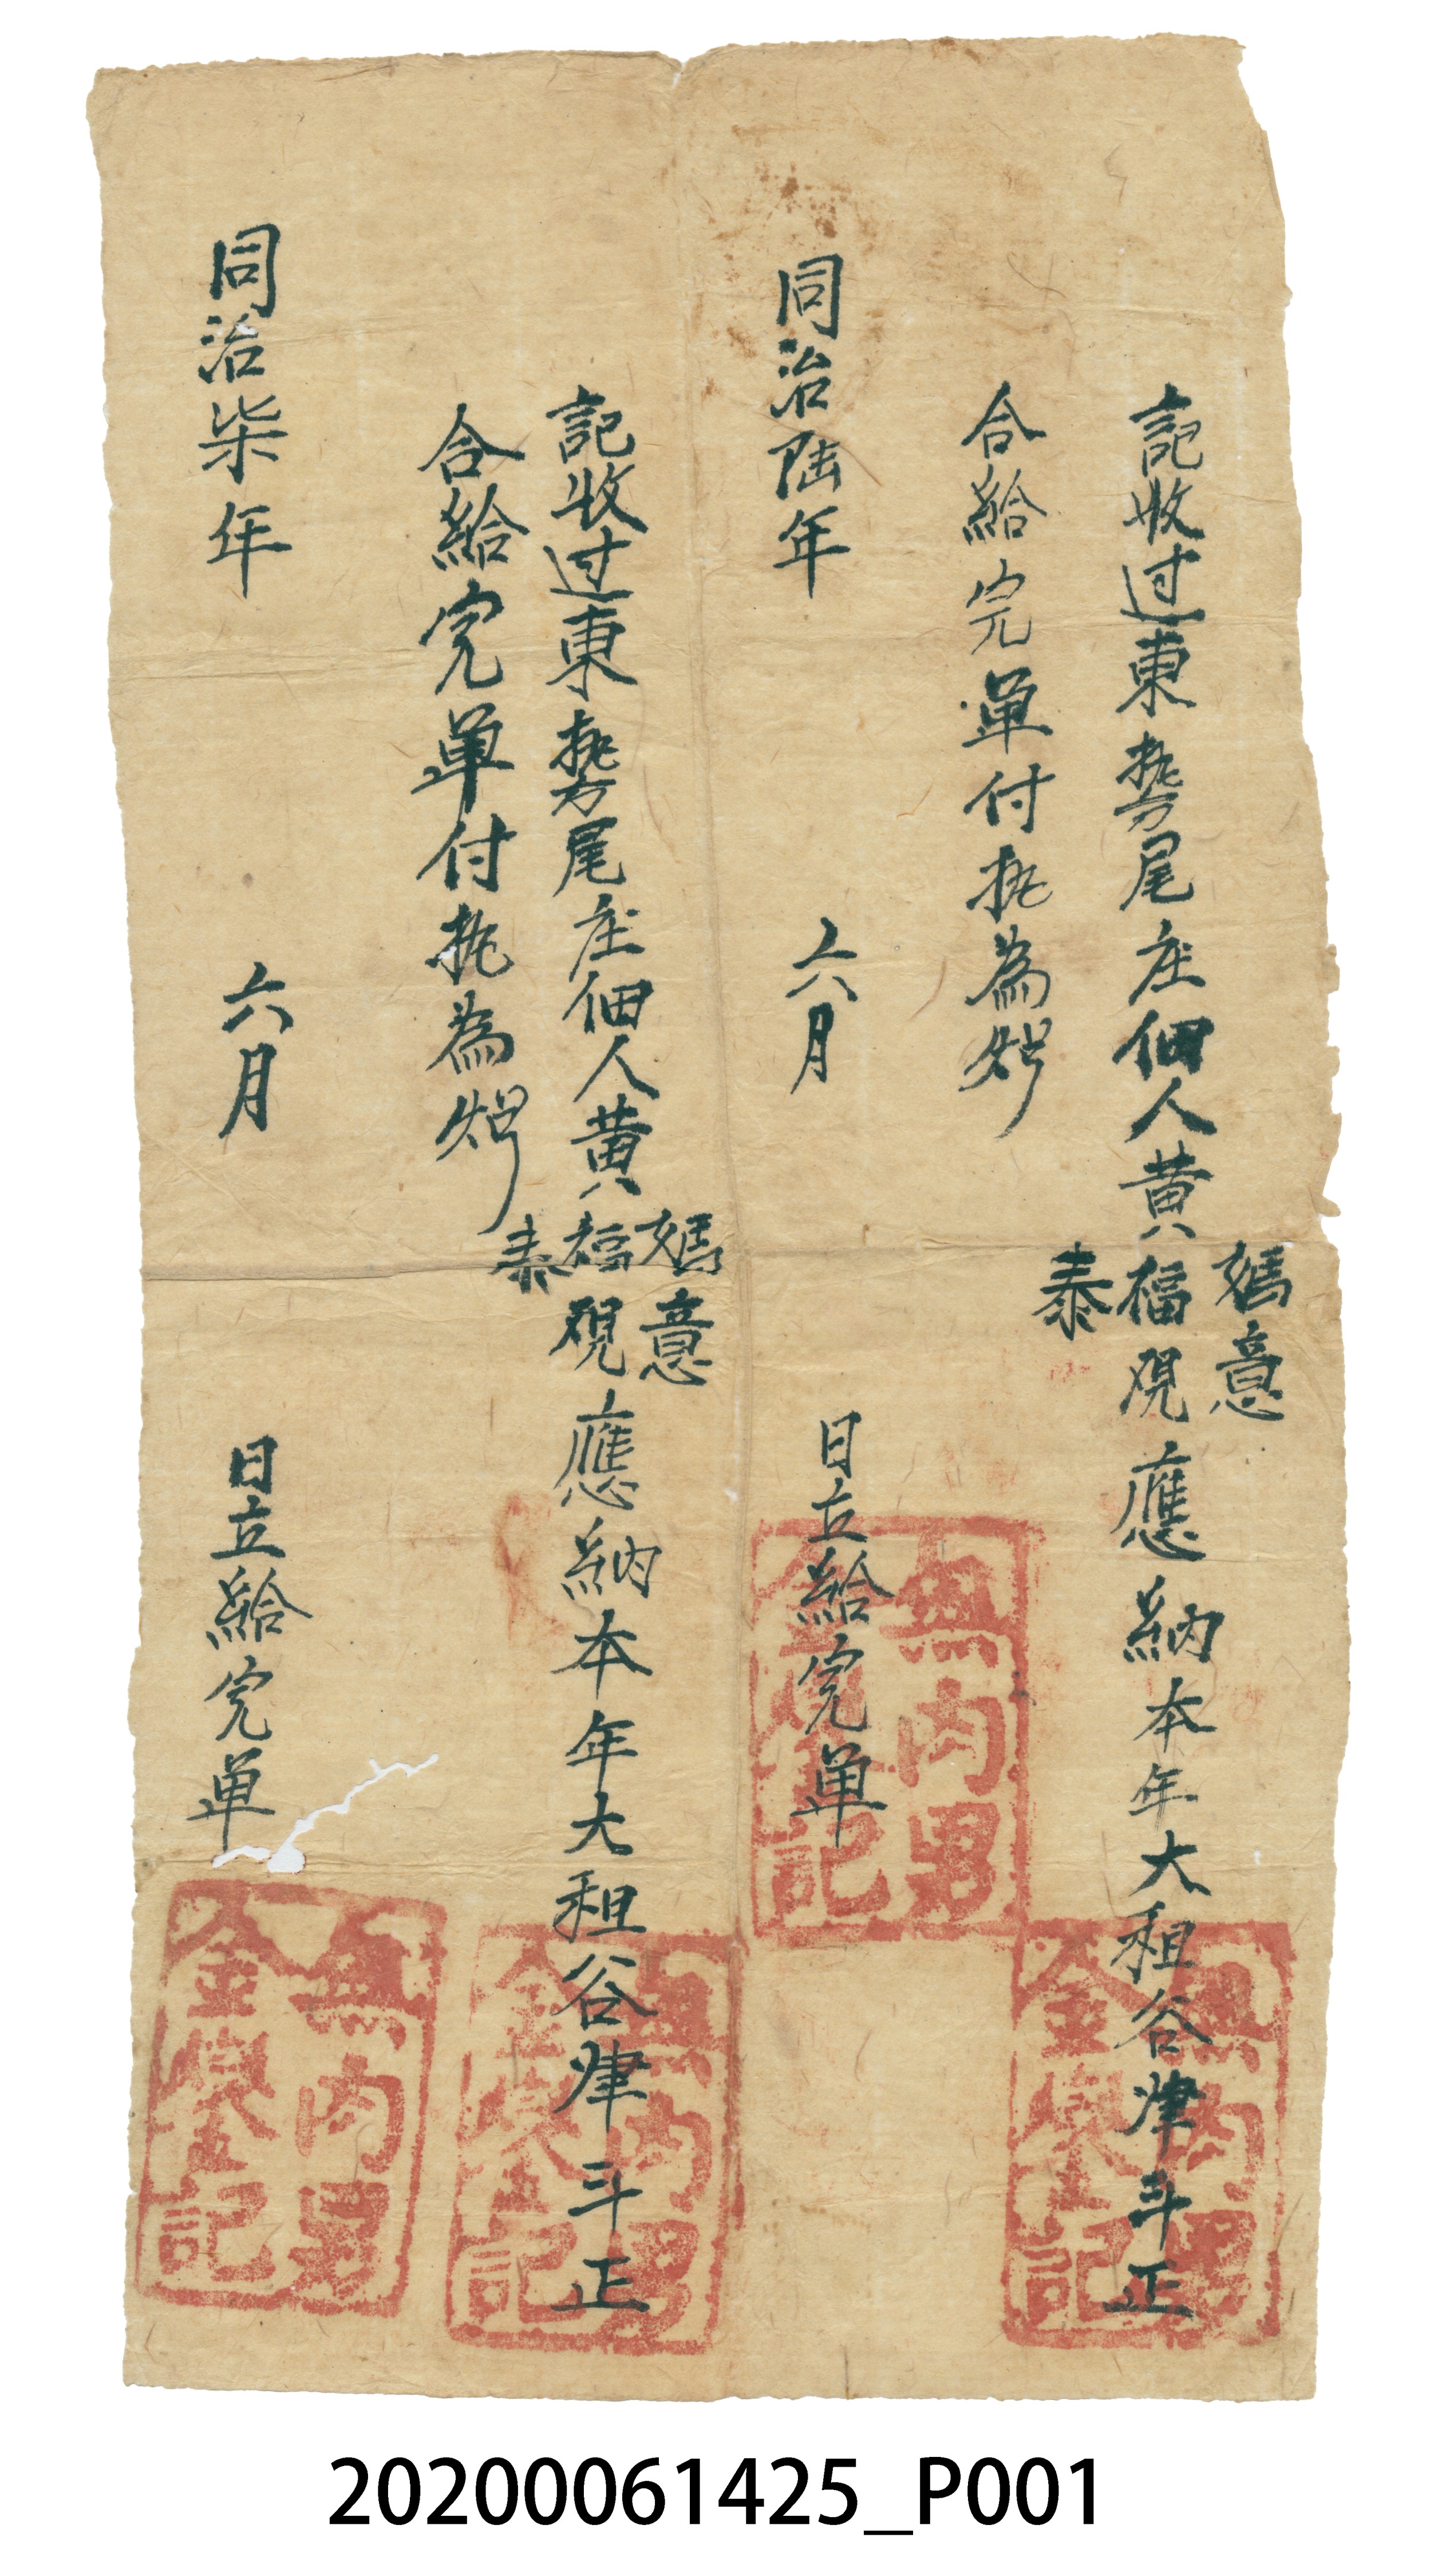 記收过東勢尾庄佃人黄媽意福覌泰應納本年大租谷肆斗正
合給完單付执為炤
同治陆年 六月 日立給完單
記收过東勢尾庄佃人黄媽意福覌泰應納本年大租谷肆斗正
合給完單付执為炤
同治柒年 六月 日立給完單
20200061425_P001